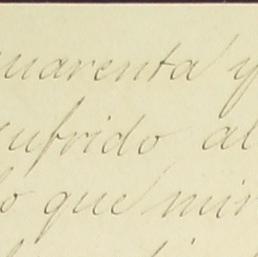 cuarenta y
sufrido al
lo que mir